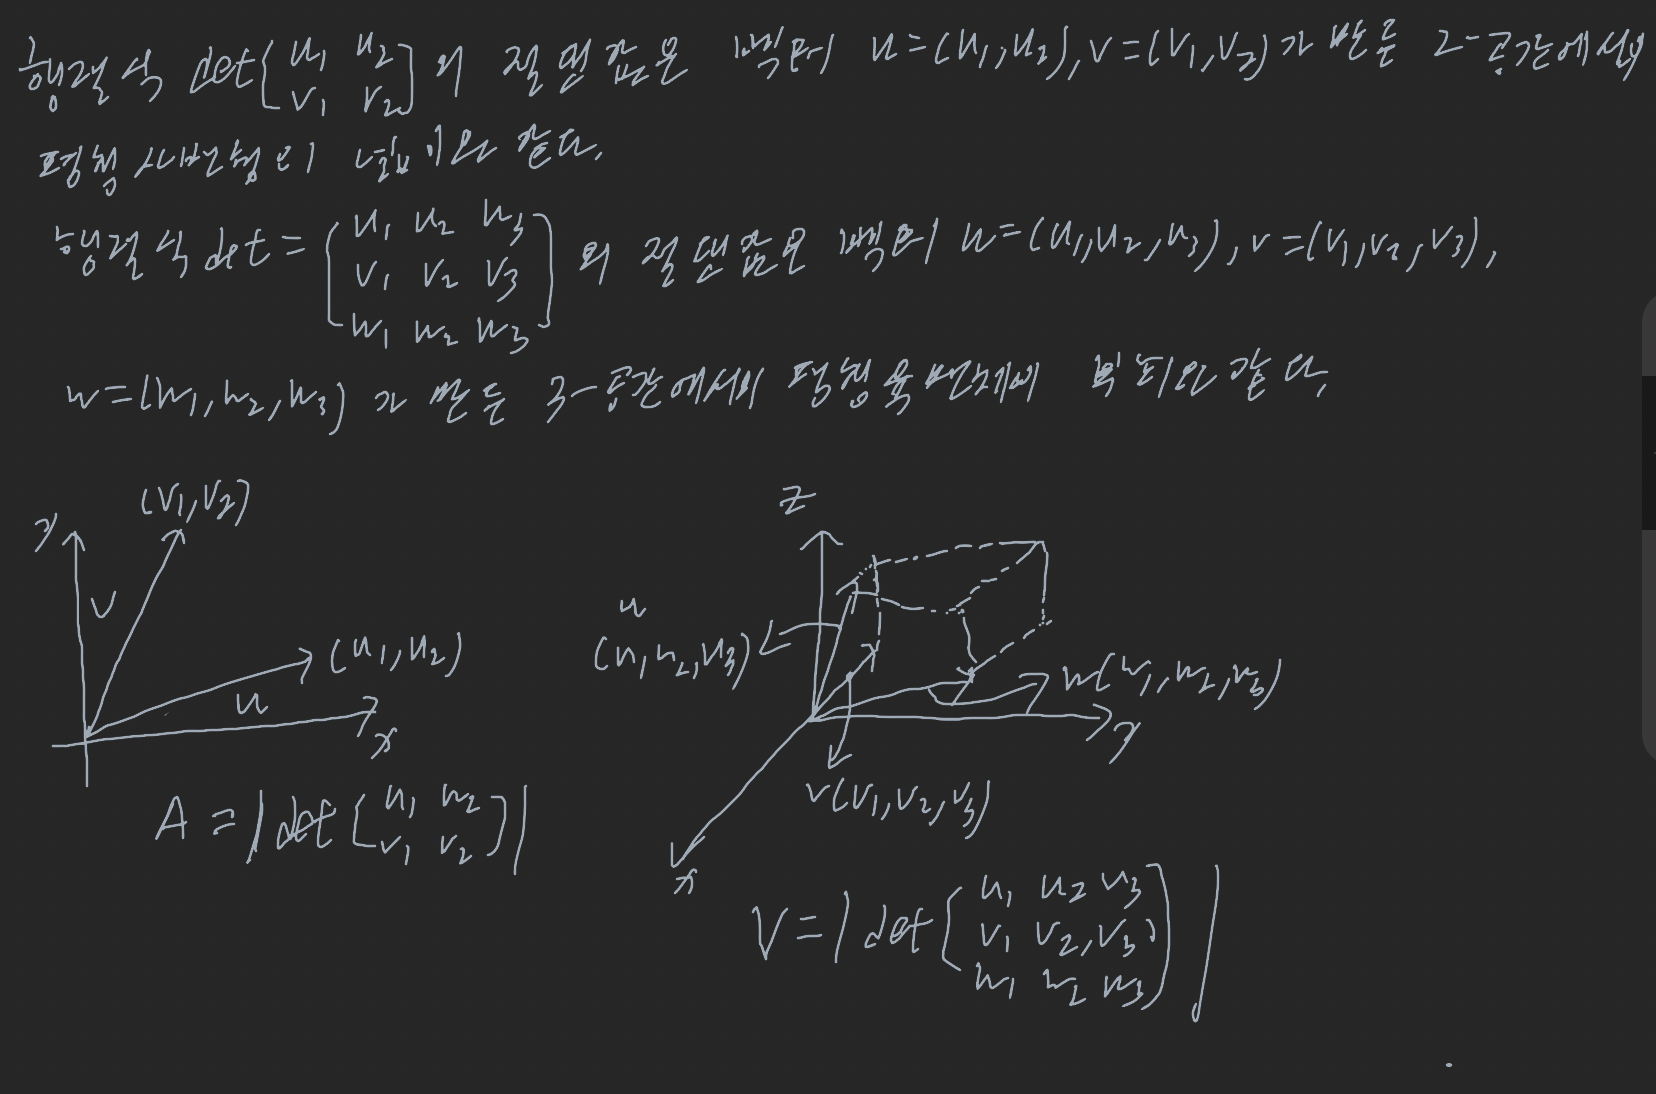 행렬식 det[u₁ u₂
v₁ v₂]의 절댓값은 벡터 u=(u₁,u₂),v=(v₁,v₂)가 만든 2-공간에서의
평행사변형의 넓이와 같다.
행렬식 det=[u₁ u₂ u₃
v₁ v₂ v₃
w₁ w₂ w₃]의 절댓값은 벡터 u=(u₁,u₂,u₃),v=(v₁,v₂,v₃),
w=(w₁,w₂,w₃)가 만든 3-공간에서의 평행육면체의 부피와 같다.
(v₁,v₂)
y
v
(u₁,u₂)
u
x
A=|det[u₁ u₂
v₁ v₂]|
z
u
(u₁,u₂,u₃)
w(w₁,w₂,w₃)
y
v(v₁,v₂,v₃)
x
V=|det[u₁ u₂ u₃
v₁ v₂,v₃
w₁ w₂ w₃]|